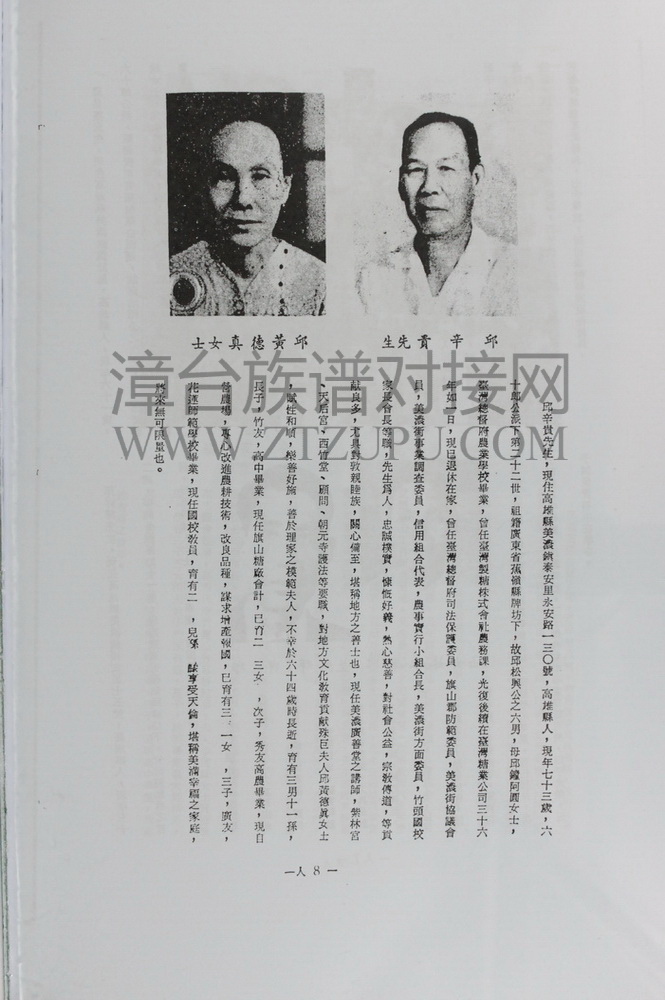 邱辛貴先生
邱黃德真女士
邱辛貴先生，現住高雄縣美濃鎮泰安里永安路一三〇號，高雄縣人，現年七十三歲，六
十郎公派下第二十二世，祖籍廣東省蕉嶺縣牌坊下，故邱松興公之六男，母邱鐘阿圓女士，
臺灣總督府農業學校畢業，曾任臺灣製糖株式會社農務課，光復後續在臺灣糖業公司三十六
年如一日，現已退休在家，曾任臺灣總督府司法保護委員，旗山郡防範委員，美濃街協議會
員，美濃街事業調查委員，信用組合代表，農事實行小組合長，美濃街方面委員，竹頭國校
家長會長等職，先生為人，忠誠樸實，慷慨好義，熱心慈善，對社會公益，宗教傳道，等貢
獻良多，尤其對敦親睦族，關心備至，堪稱地方之善士也，現任美濃廣善堂之講師，紫林宮
、天后宮、西竹堂、顧問、朝元寺護法等要職，對地方文化教育貢献殊巨夫人邱黃德眞女士
，賦性和順，樂善好施，善於理家之模範夫人，不幸於六十四歲時長逝，育有三男十一孫，
長子，竹友，高中畢業，現任旗山糖廠會計，已育二 三女 ，次子，秀友高農畢業，現自
營農場，專心改進農耕技術，改良品種，謀求增產報國，已育有三 一女 ，三子，廣友，
花蓮師範學校畢業，現任國校教員，育有二 ，兒孫 享受天倫，堪稱美滿幸福之家庭，
將來無可限量也。
一人 8 一
漳台族谱对接网
WWW.ZTZUPU.COM